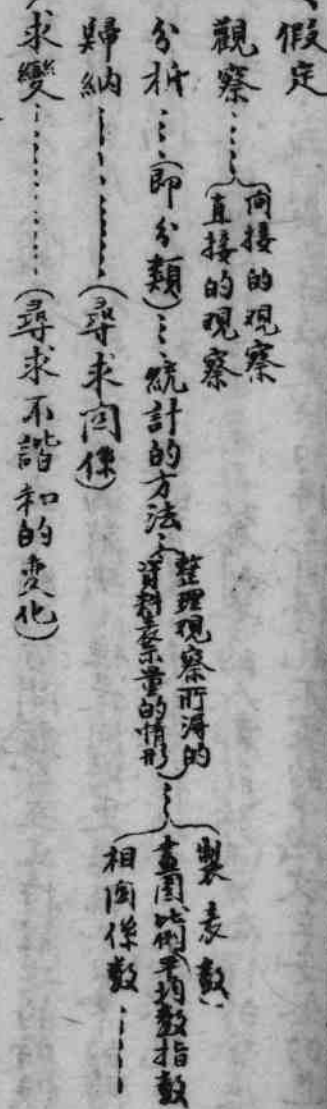 假定
觀察……間接的観察
直接的観察
分析……（即分類）……統計的方法……整理观察所得的
資料表示量的情形……製表数
畫圖比例平均數指數
相関係數……
歸納……（尋求関係）
求變……（尋求不諧和的变化）